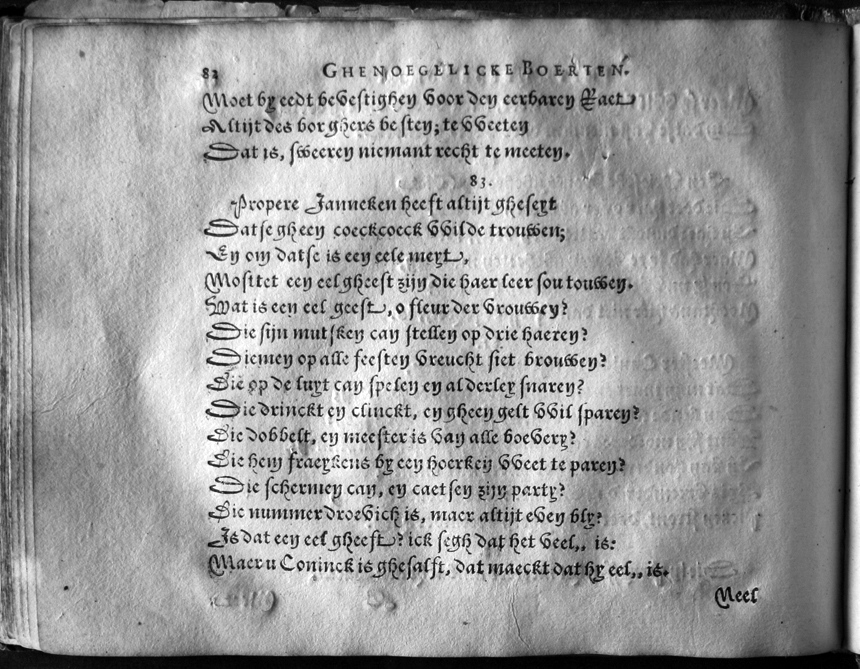 82 GHENOEGELICKE BOERTEN.
Moet by eedt bevestighen voor den eerbaren Raet
Altijt des borghers besten; te vveeten
Dat is, sweeren niemant recht te meeten.
83.
Propere Janneken heeft altijt gheseyt
Datse gheen coeckcoeck vvilde trouwen;
En om datse is een eele meyt,
Mostet een eel gheest zijn die haer leer sou touwen.
Wat is een eel geest, o fleur der vrouwen?
Die sijn mutsken can stellen op drie haeren?
Diemen op alle feesten vreucht siet brouwen?
Die op de luyt can spelen en alderley snaren?
Die drinckt en clinckt, en gheen gelt vvil sparen?
Die dobbelt, en meester is van alle boevery?
Die hem fraeykens by een hoerken vveet te paren?
Die schermen can, en caetsen zijn party?
Die nummer droevich is, maer altijt even bly?
Is dat een eel gheest? ick segh dat het veel,, is:
Maer u Coninck is ghesalft, dat maeckt dat hy eel,, is.
Meel